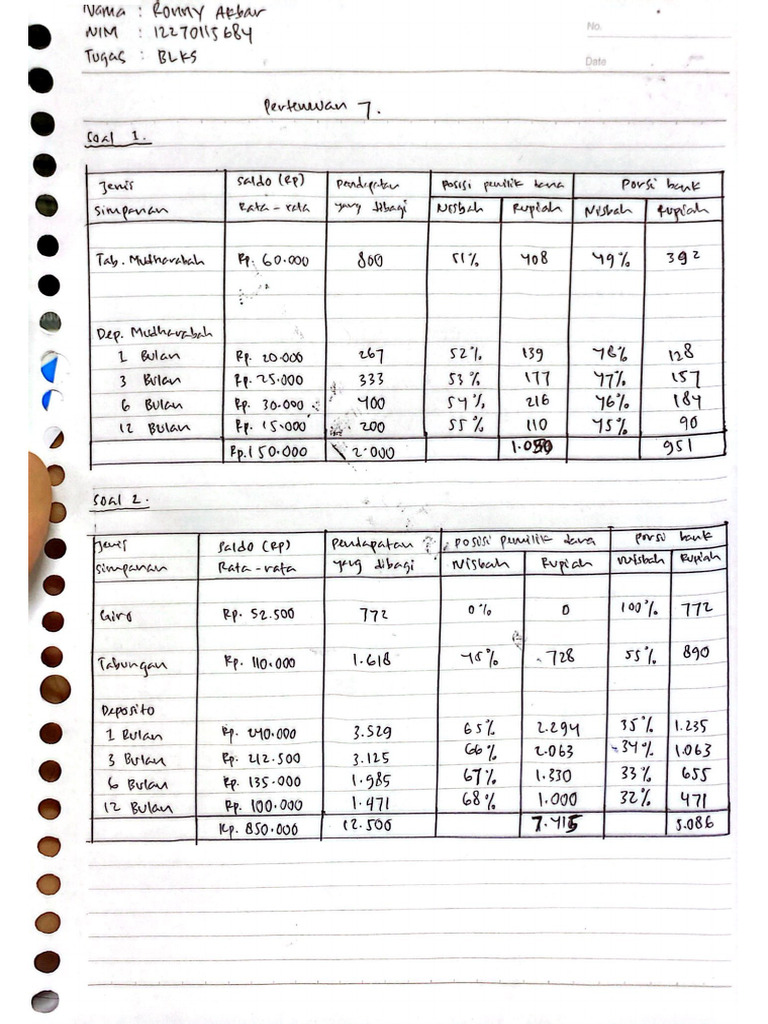 Nama : Ronny Akbar
NIM : 12270115684
Tugas : BLKS
No.
Date
Pertemuan 7.
Soal 1.
Jenis Saldo (Rp) Pendapatan Posisi pemilik dana Porsi bank
Simpanan Rata-rata yang dibagi Nisbah Rupiah Nisbah Rupiah
Tab. Mudharabah Rp. 60.000 800 51% 408 49% 392
Dep. Mudharabah
1 Bulan Rp. 20.000 267 52% 139 48% 128
3 Bulan Rp. 25.000 333 53% 177 47% 157
6 Bulan Rp. 30.000 400 54% 216 46% 184
12 Bulan Rp. 15.000 200 55% 110 45% 90
Rp.150.000 2.000 951
Soal 2.
Jenis Saldo (Rp) Pendapatan Posisi pemilik dana Porsi bank
Simpanan Rata-rata yang dibagi Nisbah Rupiah Nisbah Rupiah
Giro Rp. 52.500 772 0% 0 100% 772
Tabungan Rp. 110.000 1.618 45% 728 55% 890
Deposito
1 Bulan Rp. 240.000 3.529 65% 2.294 35% 1.235
3 Bulan Rp. 212.500 3.125 66% 2.063 34% 1.063
6 Bulan Rp. 135.000 1.985 67% 1.330 33% 655
12 Bulan Rp. 100.000 1.471 68% 1.000 32% 471
Rp. 850.000 12.500 7.415 5.086